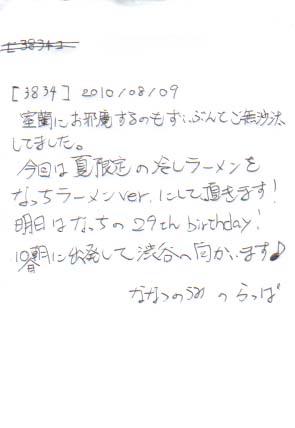 [3834]
[3834] 2010/08/09
室蘭にお邪魔するのもずいぶんとご無沙汰
してました。
今回は夏限定の冷しラーメンを
なっちラーメンver.にして頂きます!
明日はなっちの29th birthday!
朝に出発して渋谷へ向かいます♪
ななつのうみ の らっぱ